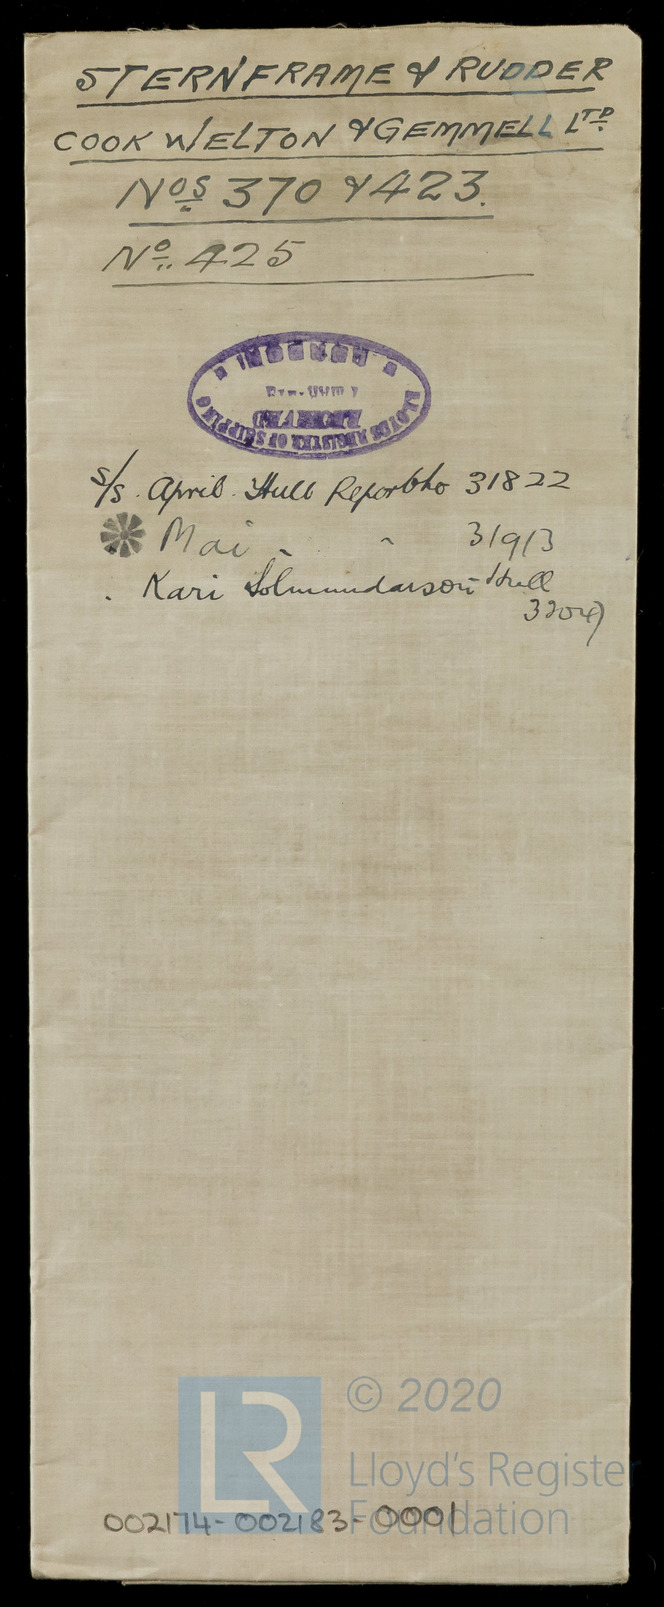 STERNFRAME & RUDDER
COOK WELTON & GEMMELL LTD
Nos 370 & 423.
No. 425
LONDON
RECEIVED
LLOYDS REGISTER OF SHIPPING
s/s. April. Hull Report No 31822
Mai " " 31913
Kari Solmundarson Hull
32047
© 2020
LR
Lloyd's Register
Foundation
002174-002183-0001